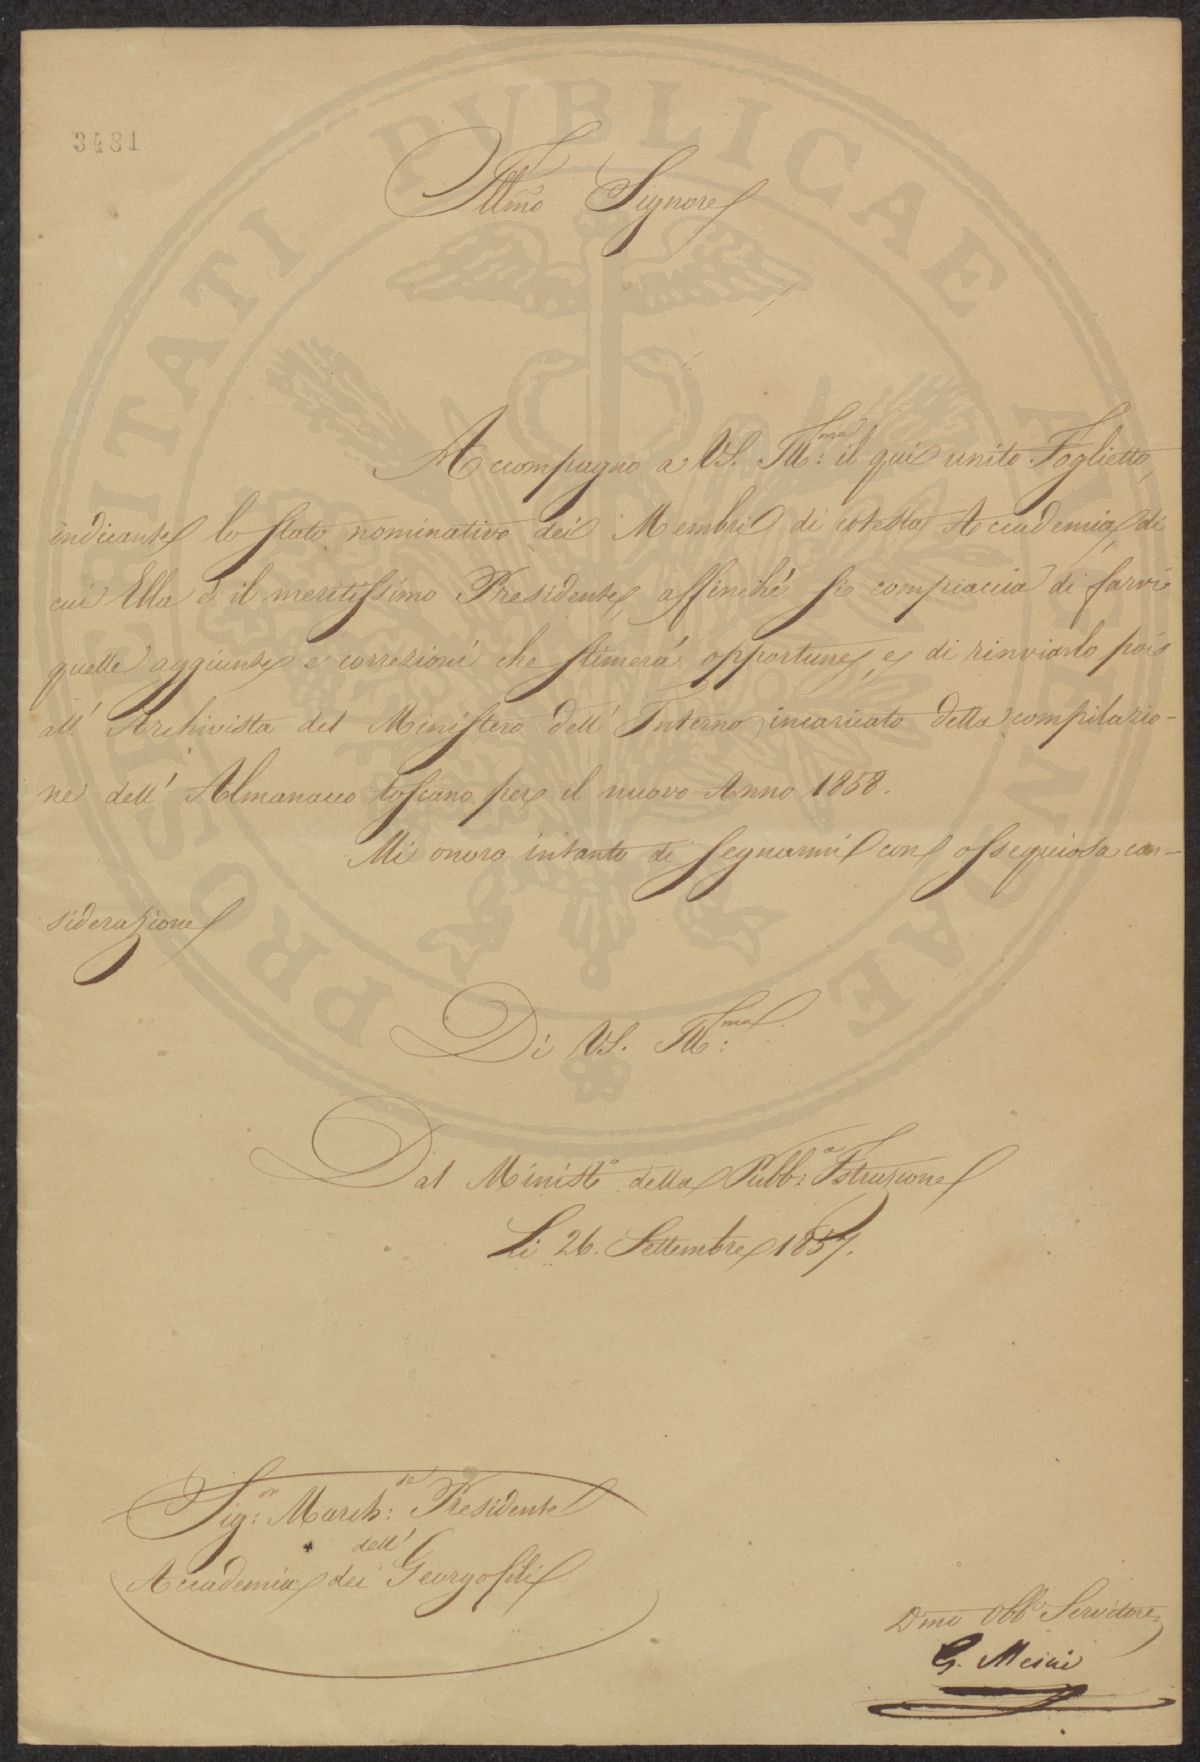 3481
PROSPERITATI PUBLICAE AUGENDAE
Illmo Signore
Accompagno a VS. Ill:ma il qui unito Foglietto,
indicante lo stato nominativo dei Membri di cotesta Accademia, di
cui Ella è il meritissimo Presidente, affinché si compiaccia di farvi
quelle aggiunte e correzioni che stimerà opportune, e di rinviarlo poi
all' Archivista del Ministero dell' Interno incaricato della compilazio-
ne dell' Almanacco toscano per il nuovo Anno 1858.
Mi onoro intanto di segnarmi con ossequiosa con-
siderazione
Di VS. Ill:ma
Dal Ministo della Pubb:a Istruzione
Li 26. Settembre 1857.
Sig:or March:se Presidente
dell'
Accademia dei Georgofili
Dmo Obbo Servitore
G. Meini